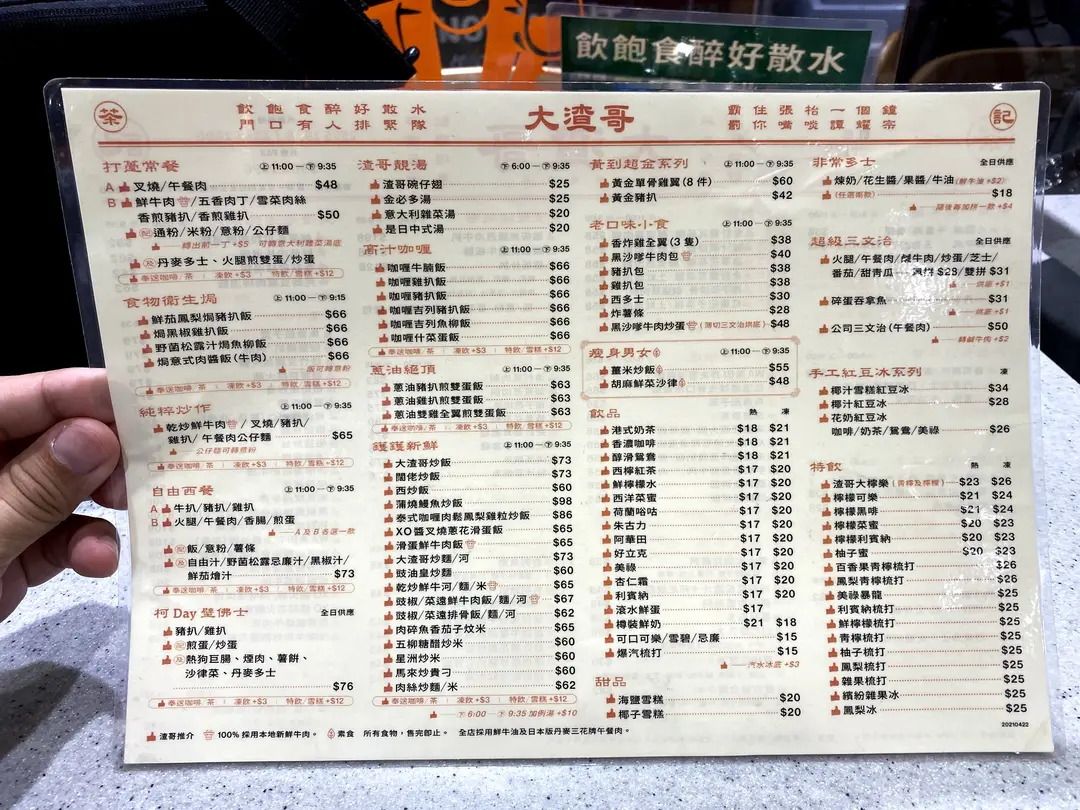 飲飽食醉好散水
茶
飲飽食醉好散水
門口有人排緊隊
大渣哥
霸住張枱一個鐘
罰你嘴啖譚耀宗
記
打躉常餐 上11:00—下9:35
A 叉燒/午餐肉 $48
B 鮮牛肉/五香肉丁/雪菜肉絲
香煎豬扒/香煎雞扒 $50
配 通粉/米粉/意粉/公仔麵
轉出前一丁+$5 可轉意大利雜菜湯底
及 丹麥多士、火腿煎雙蛋/炒蛋
奉送咖啡/茶 | 凍飲+$3 | 特飲/雪糕+$12
食物衛生焗 上11:00—下9:15
鮮茄鳳梨焗豬扒飯 $66
焗黑椒雞扒飯 $66
野菌松露汁焗魚柳飯 $66
焗意式肉醬飯(牛肉) $66
飯可轉意粉
奉送咖啡/茶 | 凍飲+$3 | 特飲/雪糕+$12
純粹炒作 上11:00—下9:35
乾炒鮮牛肉/叉燒/豬扒/
雞扒/午餐肉公仔麵 $65
公仔麵可轉意粉
奉送咖啡/茶 | 凍飲+$3 | 特飲/雪糕+$12
自由西餐 上11:00—下9:35
A 牛扒/豬扒/雞扒
B 火腿/午餐肉/香腸/煎蛋
A及B各選一款
配 飯/意粉/薯條
及 自由汁/野菌松露忌廉汁/黑椒汁/
鮮茄燴汁 $73
奉送咖啡/茶 | 凍飲+$3 | 特飲/雪糕+$12
柯Day璧佛士 全日供應
豬扒/雞扒
配 煎蛋/炒蛋
及 熱狗巨腸、煙肉、薯餅、
沙律菜、丹麥多士
$76
奉送咖啡/茶 | 凍飲+$3 | 特飲/雪糕+$12
渣哥靚湯 下6:00—下9:35
渣哥碗仔翅 $25
金必多湯 $25
意大利雜菜湯 $20
是日中式湯 $20
高汁咖喱 上11:00—下9:35
咖喱牛腩飯 $66
咖喱雞扒飯 $66
咖喱豬扒飯 $66
咖喱吉列豬扒飯 $66
咖喱吉列魚柳飯 $66
咖喱什菜蛋飯 $66
奉送咖啡/茶 | 凍飲+$3 | 特飲/雪糕+$12
蔥油絕頂 上11:00—下9:35
蔥油豬扒煎雙蛋飯 $63
蔥油雞扒煎雙蛋飯 $63
蔥油雙雞全翼煎雙蛋飯 $63
奉送咖啡/茶 | 凍飲+$3 | 特飲/雪糕+$12
鑊鑊新鮮 上11:00—下9:35
大渣哥炒飯 $73
闊佬炒飯 $73
西炒飯 $60
蒲燒鰻魚炒飯 $98
泰式咖喱肉鬆鳳梨雞粒炒飯 $86
XO醬叉燒蔥花滑蛋飯 $65
滑蛋鮮牛肉飯 $65
大渣哥炒麵/河 $73
豉油皇炒麵 $60
乾炒鮮牛河/麵/米 $65
豉椒/菜遠鮮牛肉飯/麵/河 $67
豉椒/菜遠排骨飯/麵/河 $62
肉碎魚香茄子炆米 $65
五柳糖醋炒米 $60
星洲炒米 $60
馬來炒貴刁 $60
肉絲炒麵/米 $62
奉送咖啡/茶 | 凍飲+$3 | 特飲/雪糕+$12
下6:00 下9:35加例湯+$10
黃到超金系列 上11:00—下9:35
黃金單骨雞翼(8件) $60
黃金豬扒 $42
老口味小食 上11:00—下9:35
香炸雞全翼(3隻) $38
黑沙嗲牛肉包 $40
豬扒包 $38
雞扒包 $38
西多士 $30
炸薯條 $28
黑沙嗲牛肉炒蛋(薄切三文治烘底) $48
瘦身男女 上11:00—下9:35
薑米炒飯 $55
胡麻鮮菜沙律 $48
飲品 熱 凍
港式奶茶 $18 $21
香濃咖啡 $18 $21
醇滑鴛鴦 $18 $21
西檸紅茶 $17 $20
鮮檸檬水 $17 $20
西洋菜蜜 $17 $20
荷蘭唂咕 $17 $20
朱古力 $17 $20
阿華田 $17 $20
好立克 $17 $20
美祿 $17 $20
杏仁霜 $17 $20
利賓納 $17 $20
滾水鮮蛋 $17
樽裝鮮奶 $21 $18
可口可樂/雪碧/忌廉 $15
爆汽梳打 $15
汽水冰底+$3
甜品
海鹽雪糕 $20
椰子雪糕 $20
非常多士 全日供應
煉奶/花生醬/果醬/牛油(鮮牛油+$2)
(任選兩款) $18
隨後每加橋一款+$4
超級三文治 全日供應
火腿/午餐肉/鹹牛肉/炒蛋/芝士/
番茄/甜青瓜 單拼$29/雙拼$31
烘底+$1
碎蛋吞拿魚 $31
烘底+$1
公司三文治(午餐肉) $50
轉鹹牛肉+$2
手工紅豆冰系列 凍
椰汁雪糕紅豆冰 $34
椰汁紅豆冰 $28
花奶紅豆冰
咖啡/奶茶/鴛鴦/美祿 $26
特飲 熱 凍
渣哥大檸樂(青檸及檸檬) $23 $26
檸檬可樂 $21 $24
檸檬黑啡 $21 $24
檸檬菜蜜 $20 $23
檸檬利賓納 $20 $23
柚子蜜 $20 $23
百香果青檸梳打 $26
鳳梨青檸梳打 $26
美祿暴龍 $25
利賓納梳打 $25
鮮檸檬梳打 $25
青檸梳打 $25
柚子梳打 $25
鳳梨梳打 $25
雜果梳打 $25
繽紛雜果冰 $25
鳳梨冰 $25
20210422
渣哥推介 100%採用本地新鮮牛肉。 素食 所有食物，售完即止。 全店採用鮮牛油及日本版丹麥三花牌午餐肉。